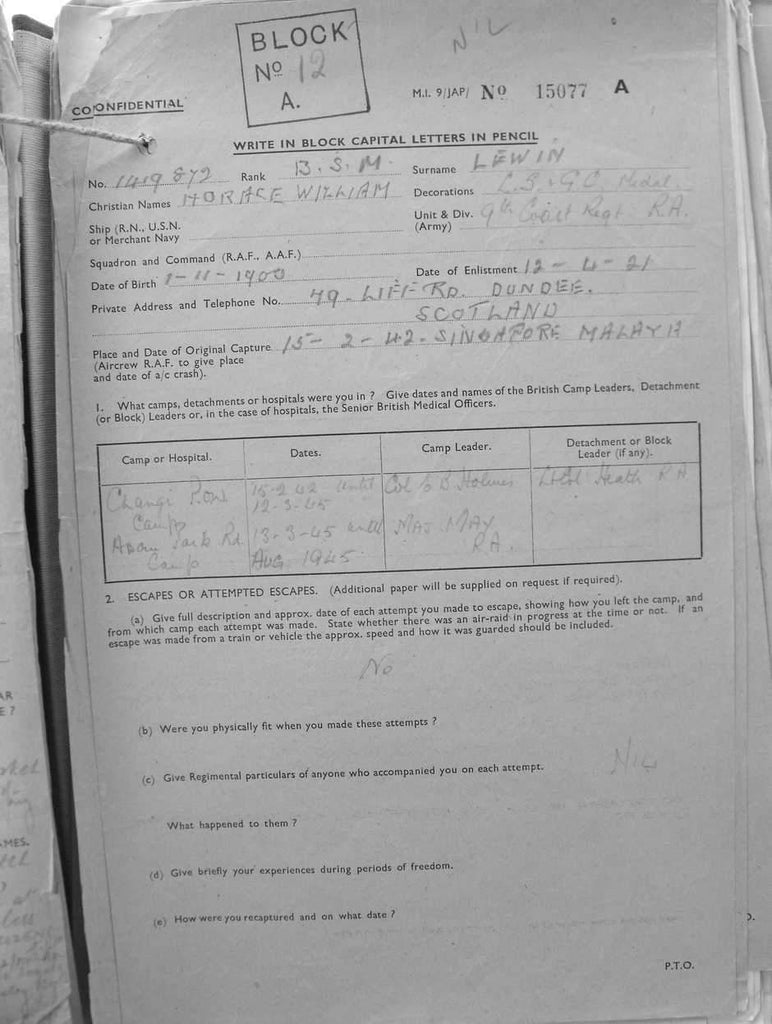 BLOCK
Nº 12
A.
NIL
COONFIDENTIAL
M.I. 9/JAP/ Nº 15077 A
WRITE IN BLOCK CAPITAL LETTERS IN PENCIL
No. 1419872 Rank B.S.M. Surname LEWIN
Christian Names HORACE WILLIAM Decorations L.S. & G.C. Medal
Ship (R.N., U.S.N. or Merchant Navy
Unit & Div. (Army) 9th Coast Regt R.A.
Squadron and Command (R.A.F., A.A.F.)
Date of Birth 1-11-1900 Date of Enlistment 12-4-21
Private Address and Telephone No. 79. LIFF RD. DUNDEE.
SCOTLAND
Place and Date of Original Capture 15-2-42. SINGAPORE MALAYA
(Aircrew R.A.F. to give place
and date of a/c crash).
1. What camps, detachments or hospitals were you in ? Give dates and names of the British Camp Leaders, Detachment
(or Block) Leaders or, in the case of hospitals, the Senior British Medical Officers.
Camp or Hospital. Dates. Camp Leader. Detachment or Block Leader (if any).
Changi P.O.W. Camp 15-2-42 until 12-3-45 Col E B Holmes Lt Col Heath RA
Adam Park Rd Camp 13-3-45 until AUG 1945 MAJ MAY RA.
2. ESCAPES OR ATTEMPTED ESCAPES. (Additional paper will be supplied on request if required).
(a) Give full description and approx. date of each attempt you made to escape, showing how you left the camp, and
from which camp each attempt was made. State whether there was an air-raid in progress at the time or not. If an
escape was made from a train or vehicle the approx. speed and how it was guarded should be included.
No
(b) Were you physically fit when you made these attempts ?
(c) Give Regimental particulars of anyone who accompanied you on each attempt.
NIL
What happened to them ?
(d) Give briefly your experiences during periods of freedom.
(e) How were you recaptured and on what date ?
P.T.O.